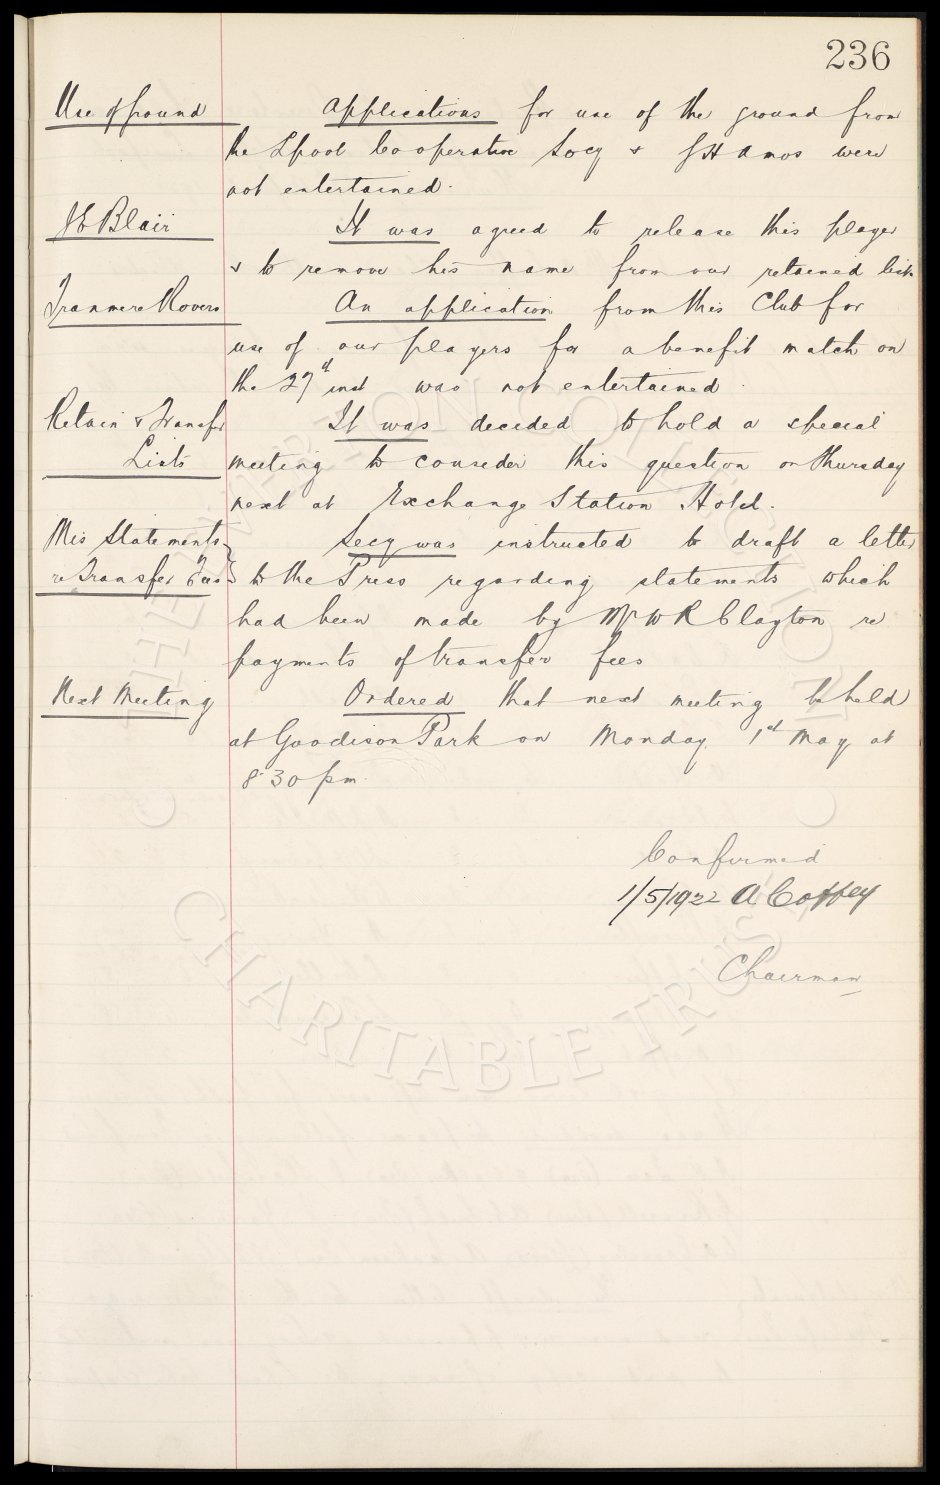 236
Use of Ground Applications for use of the ground from
the Lpool Cooperative Socy & J H Amos were
not entertained.
J E Blair It was agreed to release this player
& to remove his name from our retained list
Tranmere Rovers An application from this Club for
use of our players for a benefit match on
the 27th inst was not entertained.
Retain & Transfer It was decided to hold a special
Lists meeting to consider this question on Thursday
next at Exchange Station Hotel.
Mis Statements Secy was instructed to draft a letter
re Transfer Fees to the Press regarding statements which
had been made by Mr W R Clayton re
payments of transfer fees
Next Meeting Ordered that next meeting be held
at Goodison Park on Monday 1st May at
8.30 pm.
Confirmed
1/5/1922 A Coffey
Chairman
© THE EVERTON COLLECTION ©
CHARITABLE TRUST